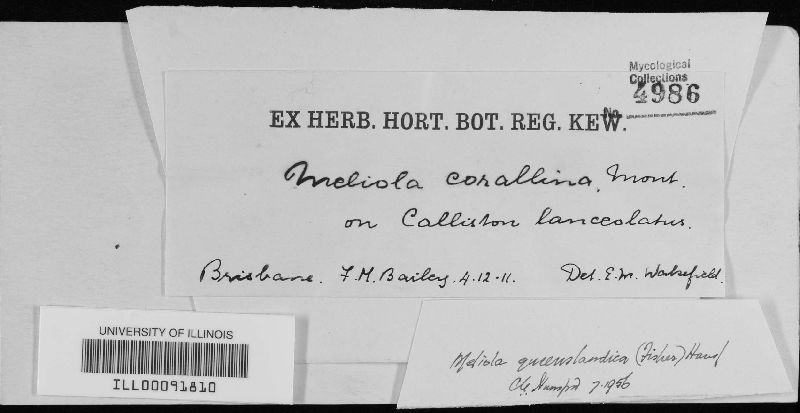 Mycological
Collections
No. 4986
EX HERB. HORT. BOT. REG. KEW.
Meliola corallina, Mont.
on Calliston lanceolatus.
Brisbane. F. M. Bailey. 4.12.11. Det. E. M. Wakefield.
UNIVERSITY OF ILLINOIS
ILL00091810
Meliola queenslandica (Fisher) Hansf
7-1956